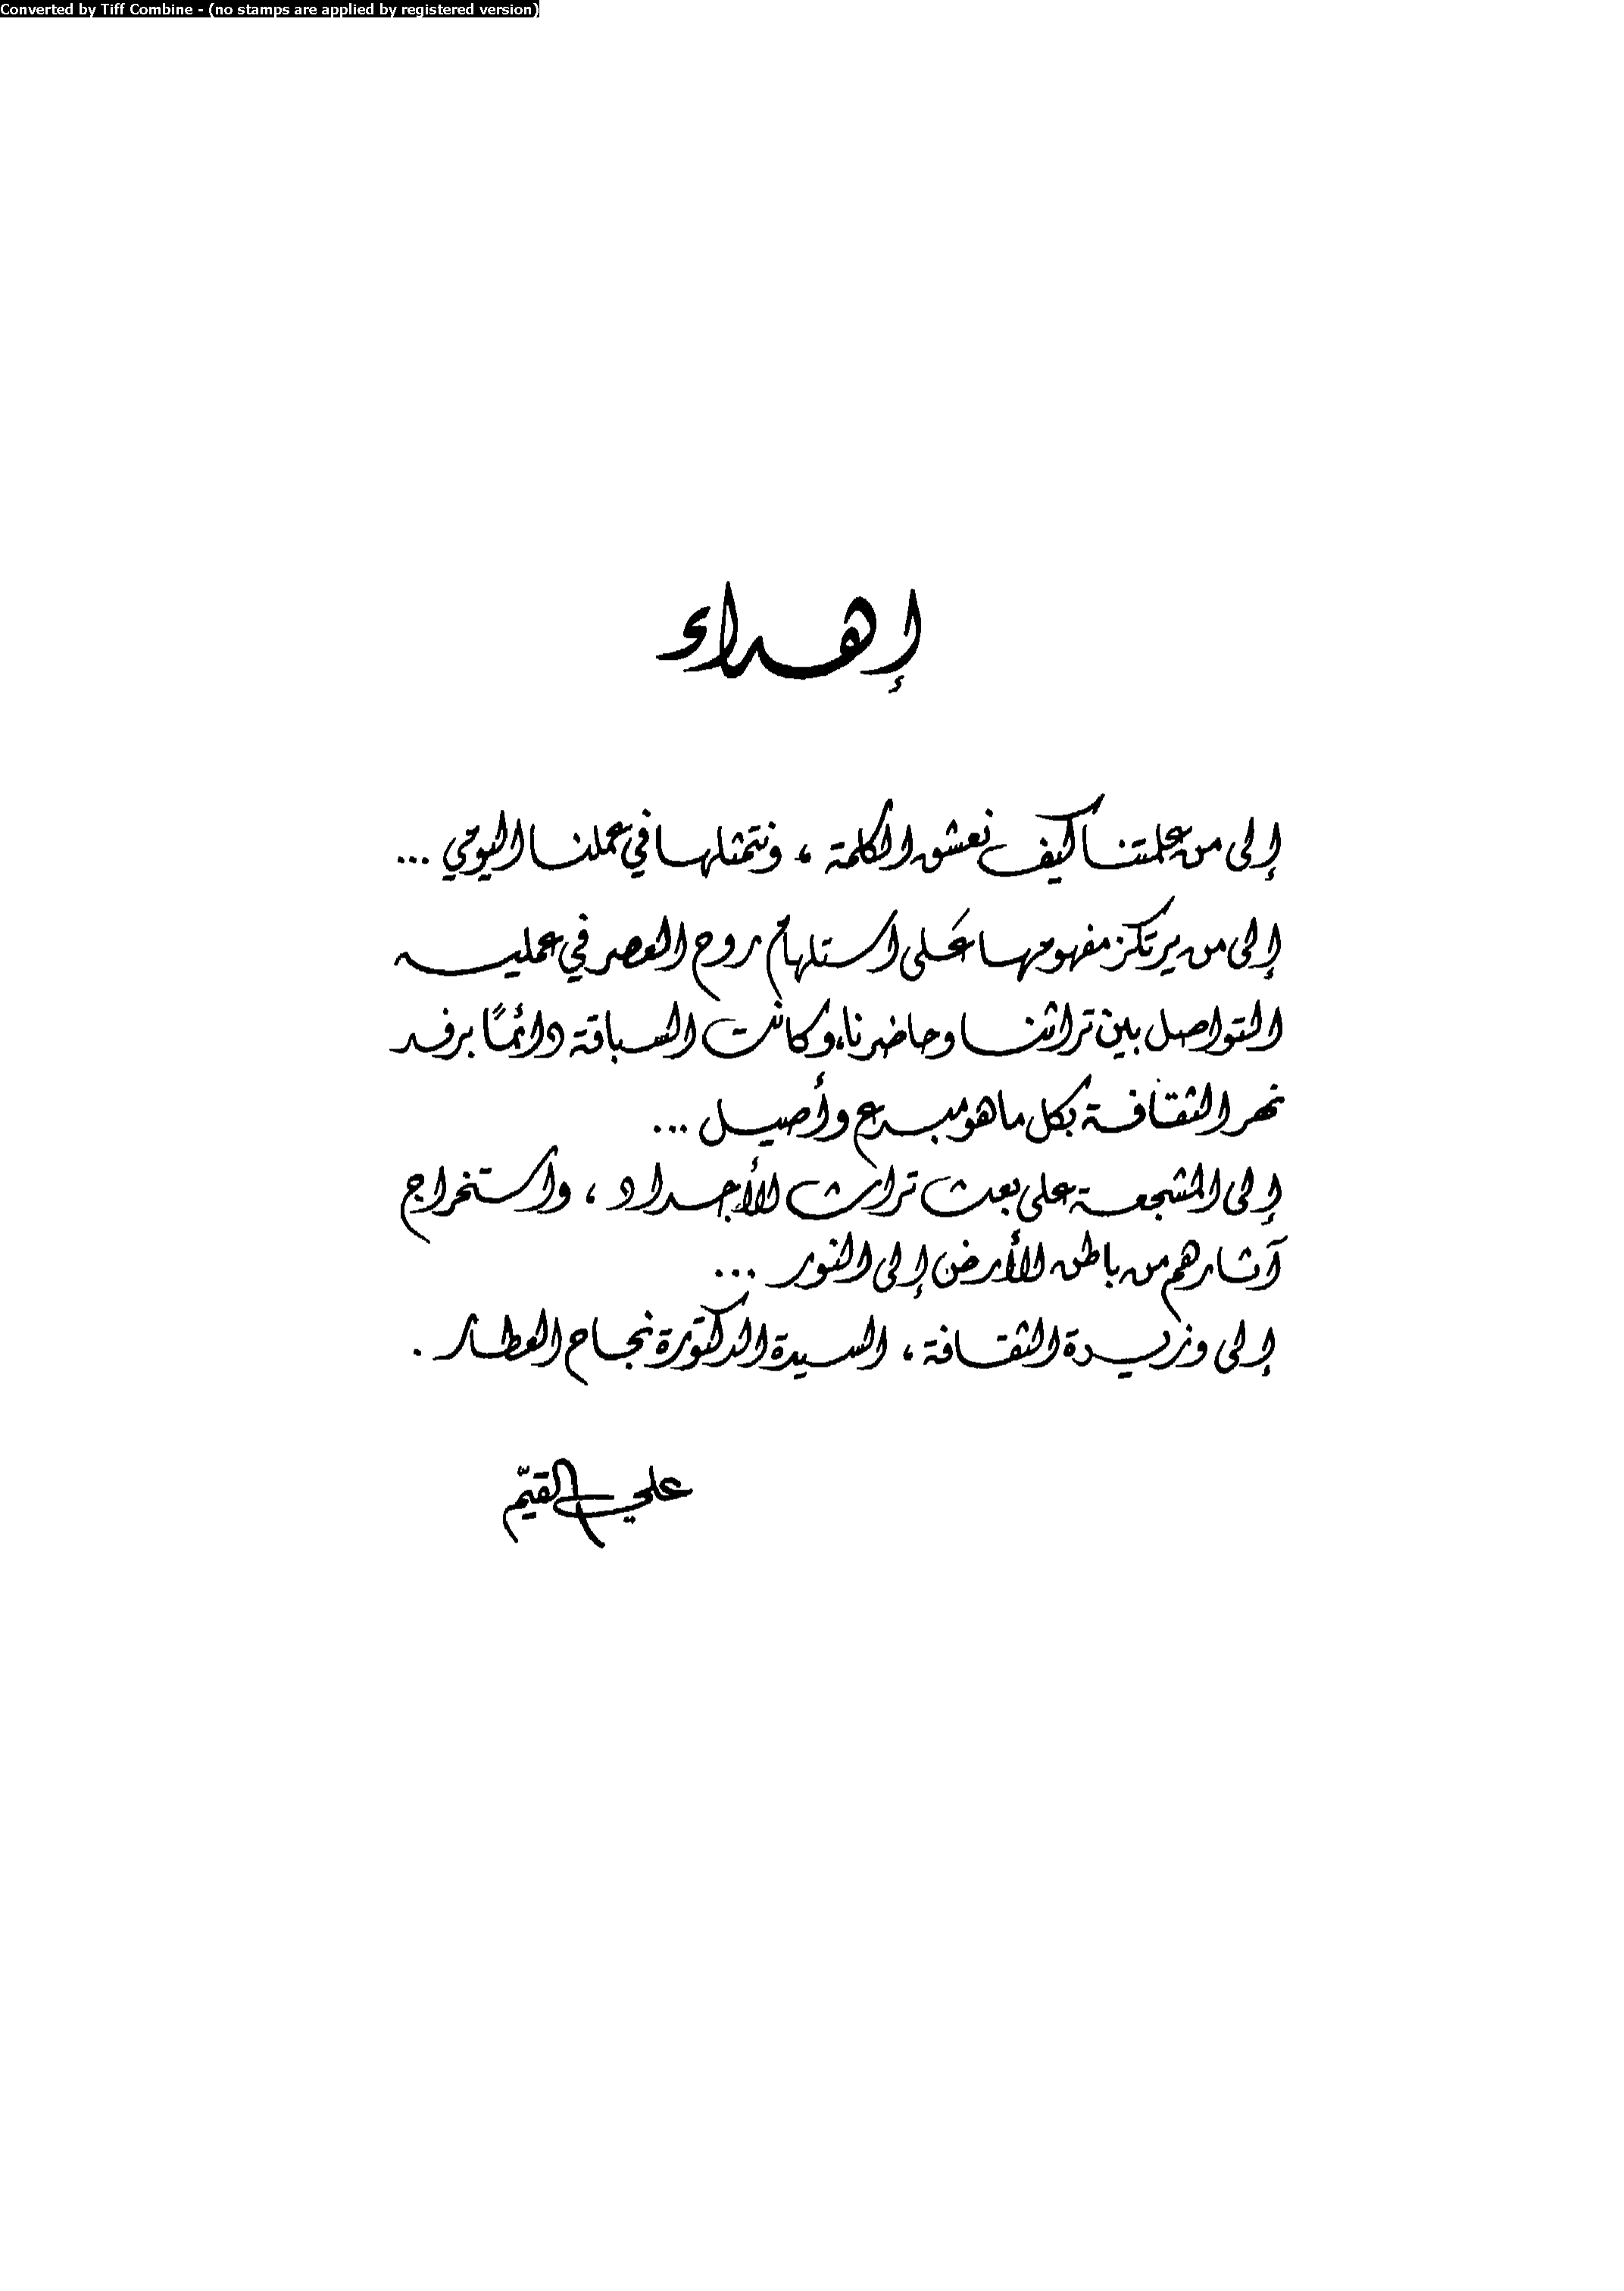 Converted by Tiff Combine - (no stamps are applied by registered version)
إهداء
إلى من علمتنا كيف نعشق الكلمة ، ونتمثلها في عملنا اليومي ...
إلى من يرتكز مفهومها عَلى استلهام روح العصر في عمليه
التواصل بين تراثنا وحاضرنا، وكانت السباقة دائمًا برفد
نهر الثقافة بكل ما هو مبدع وأصيل ...
إلى المشجعة على بعث تراث الأجداد ، واستخراج
آثارهم من باطن الأرض إلى النور ...
إلى وزيرة الثقافة ، السيدة الدكتورة نجاح العطار .
علي القيّم